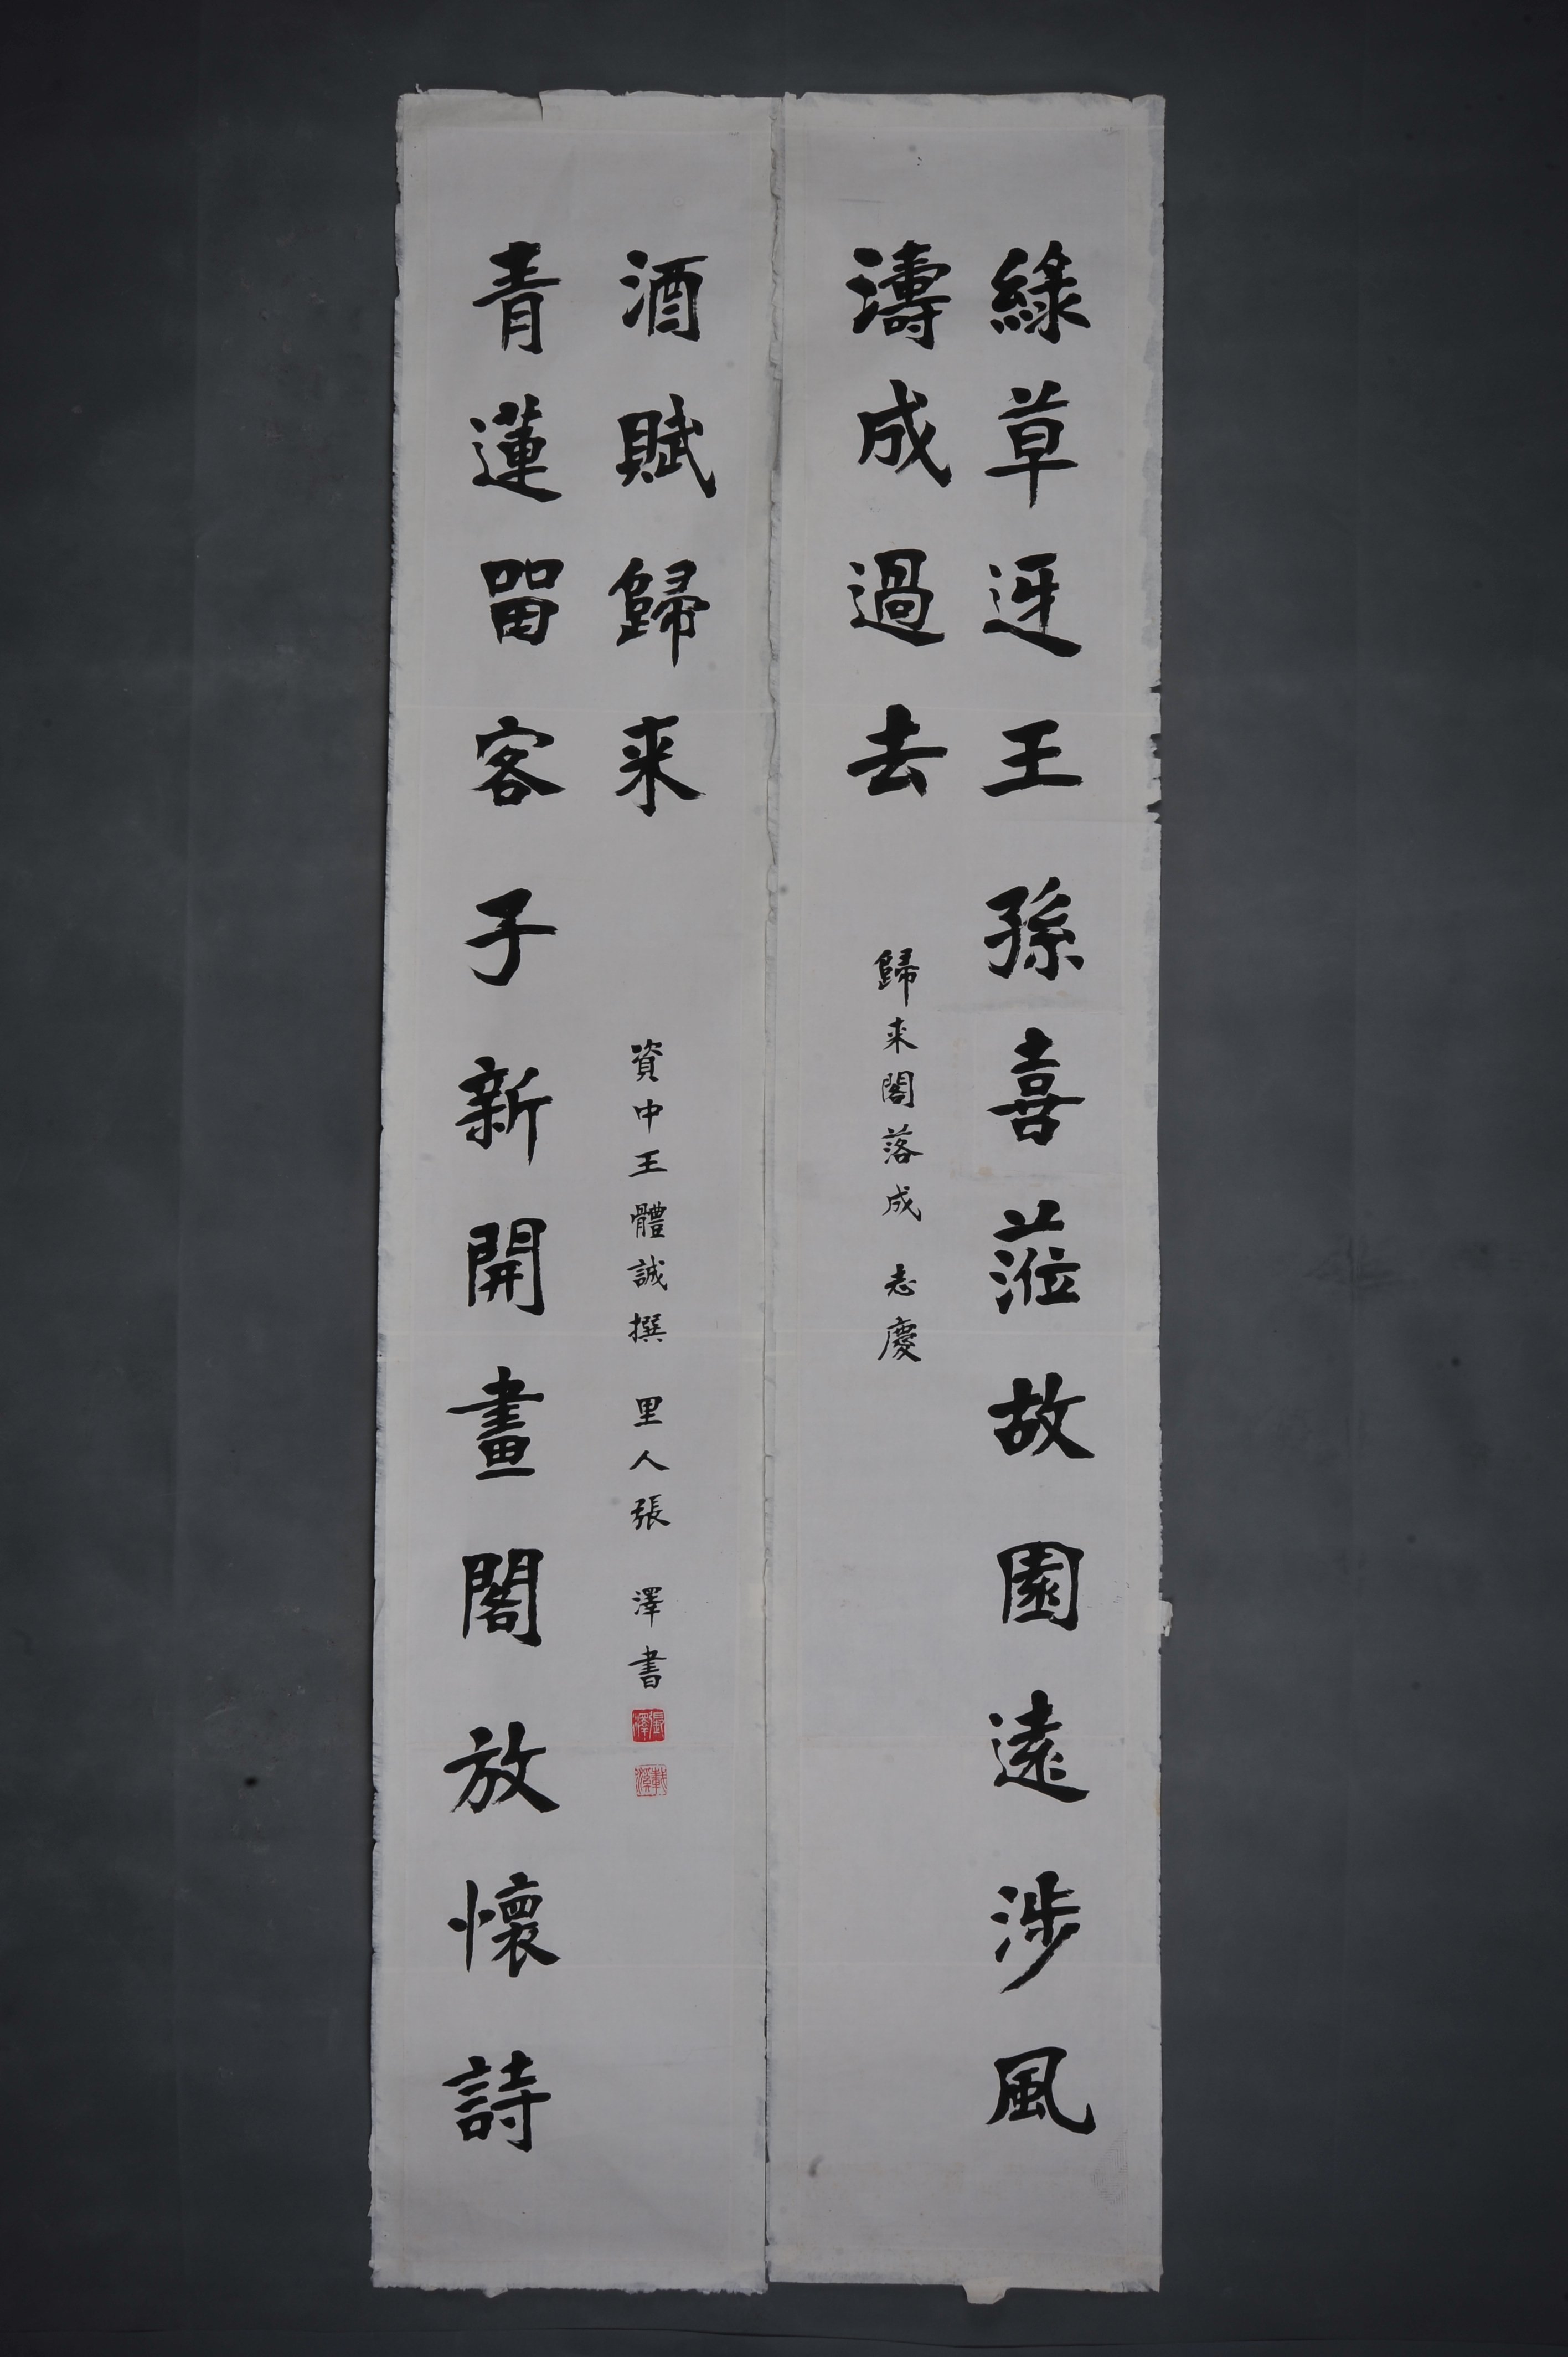 綠草迓王孫喜蒞故園遠涉風
濤成過去
歸来閣落成 志慶
青蓮畱客子新開畫閣放懷詩
酒賦歸来
資中王體誠撰 里人張 澤書
張澤